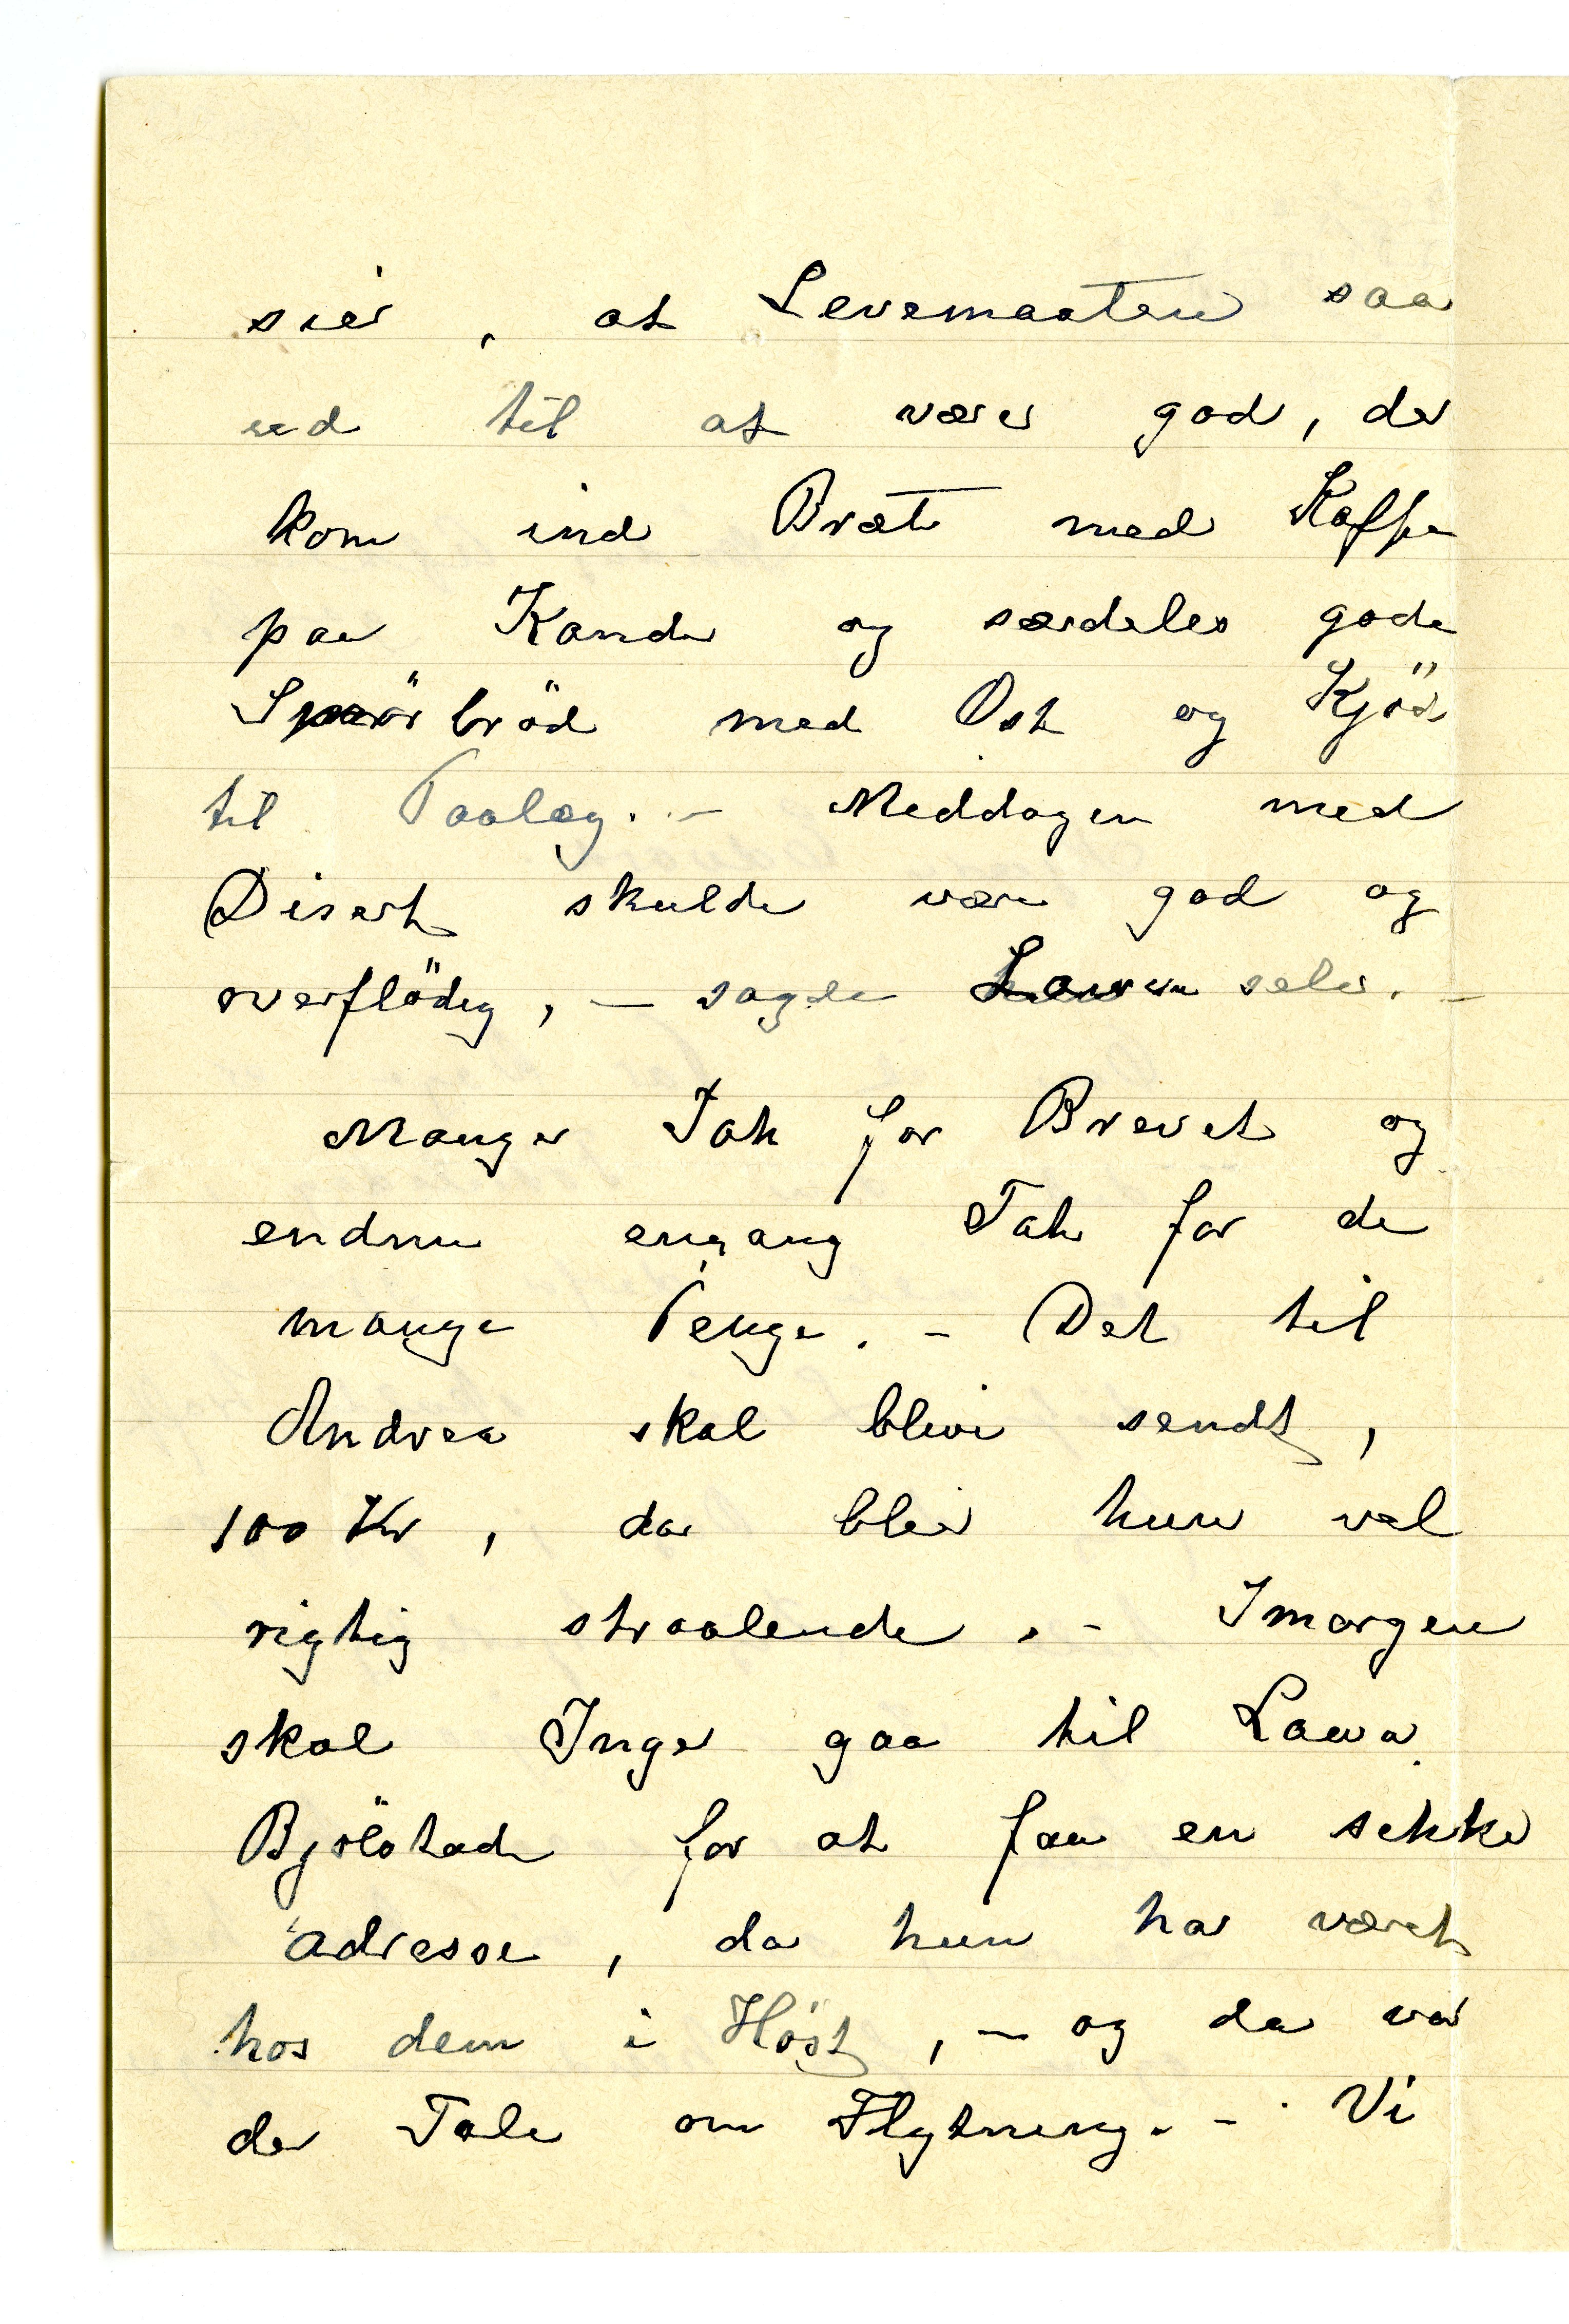 sier, at Levemaaten saa
ud til at være god, der
kom ind Bræt med Kaffe
paa Kande og særdeles gode
Smörbröd med Ost og Kjöd
til Paalæg. – Middagen med
Disert skulde være god og
overflödig, – sagde Lawra selv. –
Mange Tak for Brevet og
endnu engang Tak for de
mange Penge. – Det til
Andrea skal blive sendt,
100 Kr, da blir hun vel
rigtig straalende. – Imorgen
skal Inga gaa til Lawa
Bjölstad for at faa en sikker
adresse, da hun har været
hos dem i Höst, – og da var
der Tale om Flytning. – Vi